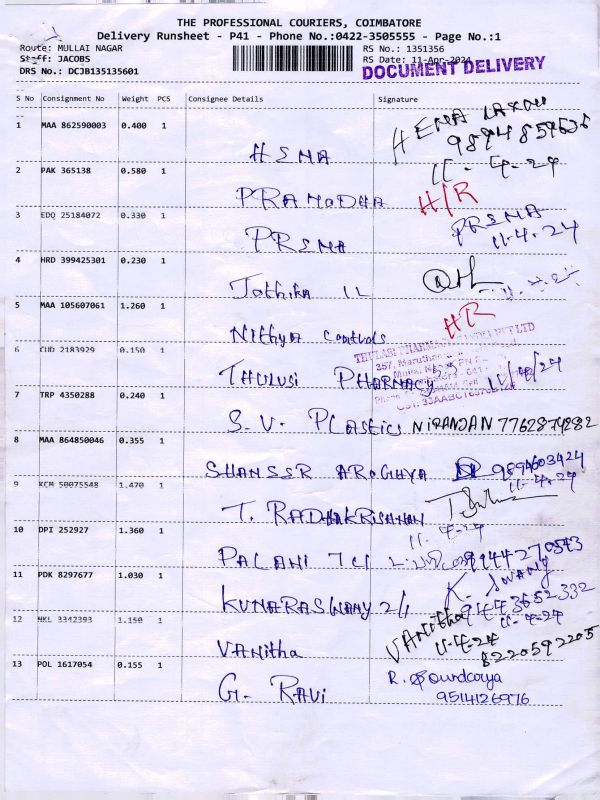 THE PROFESSIONAL COURIERS, COIMBATORE
Delivery Runsheet - P41 - Phone No.:0422-3505555 - Page No.:1
Route: MULLAI NAGAR RS No.: 1351356
Staff: JACOBS RS Date: 11-Apr-2024
DRS No.: DCJB135135601 DOCUMENT DELIVERY
S No Consignment No Weight PCS Consignee Details Signature
1 MAA 862590003 0.400 1 HEMA
9894859636
11-4-24
2 PAK 365138 0.580 1 PRAMODHA H/R
3 EDQ 25184072 0.330 1 PREMA PREMA
11.4.24
4 HRD 399425301 0.230 1
5 MAA 105607061 1.260 1 Nithya controls HR
6 CHD 2183929 0.150 1 THULUSI PHARMACY 11/4/24
THULASI PHARMACY PVT LTD
7 TRP 4350288 0.240 1 S.V. PLASTICS NIRANJAN 7762874282
8 MAA 864850046 0.355 1 9894603424
11.4.24
9 KCM 50075548 1.470 1 T. RADHAKRISHNAN
11-4-24
10 DPI 252927 1.360 1 PALANI
11 PDK 8297677 1.030 1 KUMARASWAMY 9443652332
11-4-24
12 NKL 3342393 1.150 1 VANITHA VANITHA
11-4-24
8220592205
13 POL 1617054 0.155 1 G. RAVI R. Soundarya
9514126976